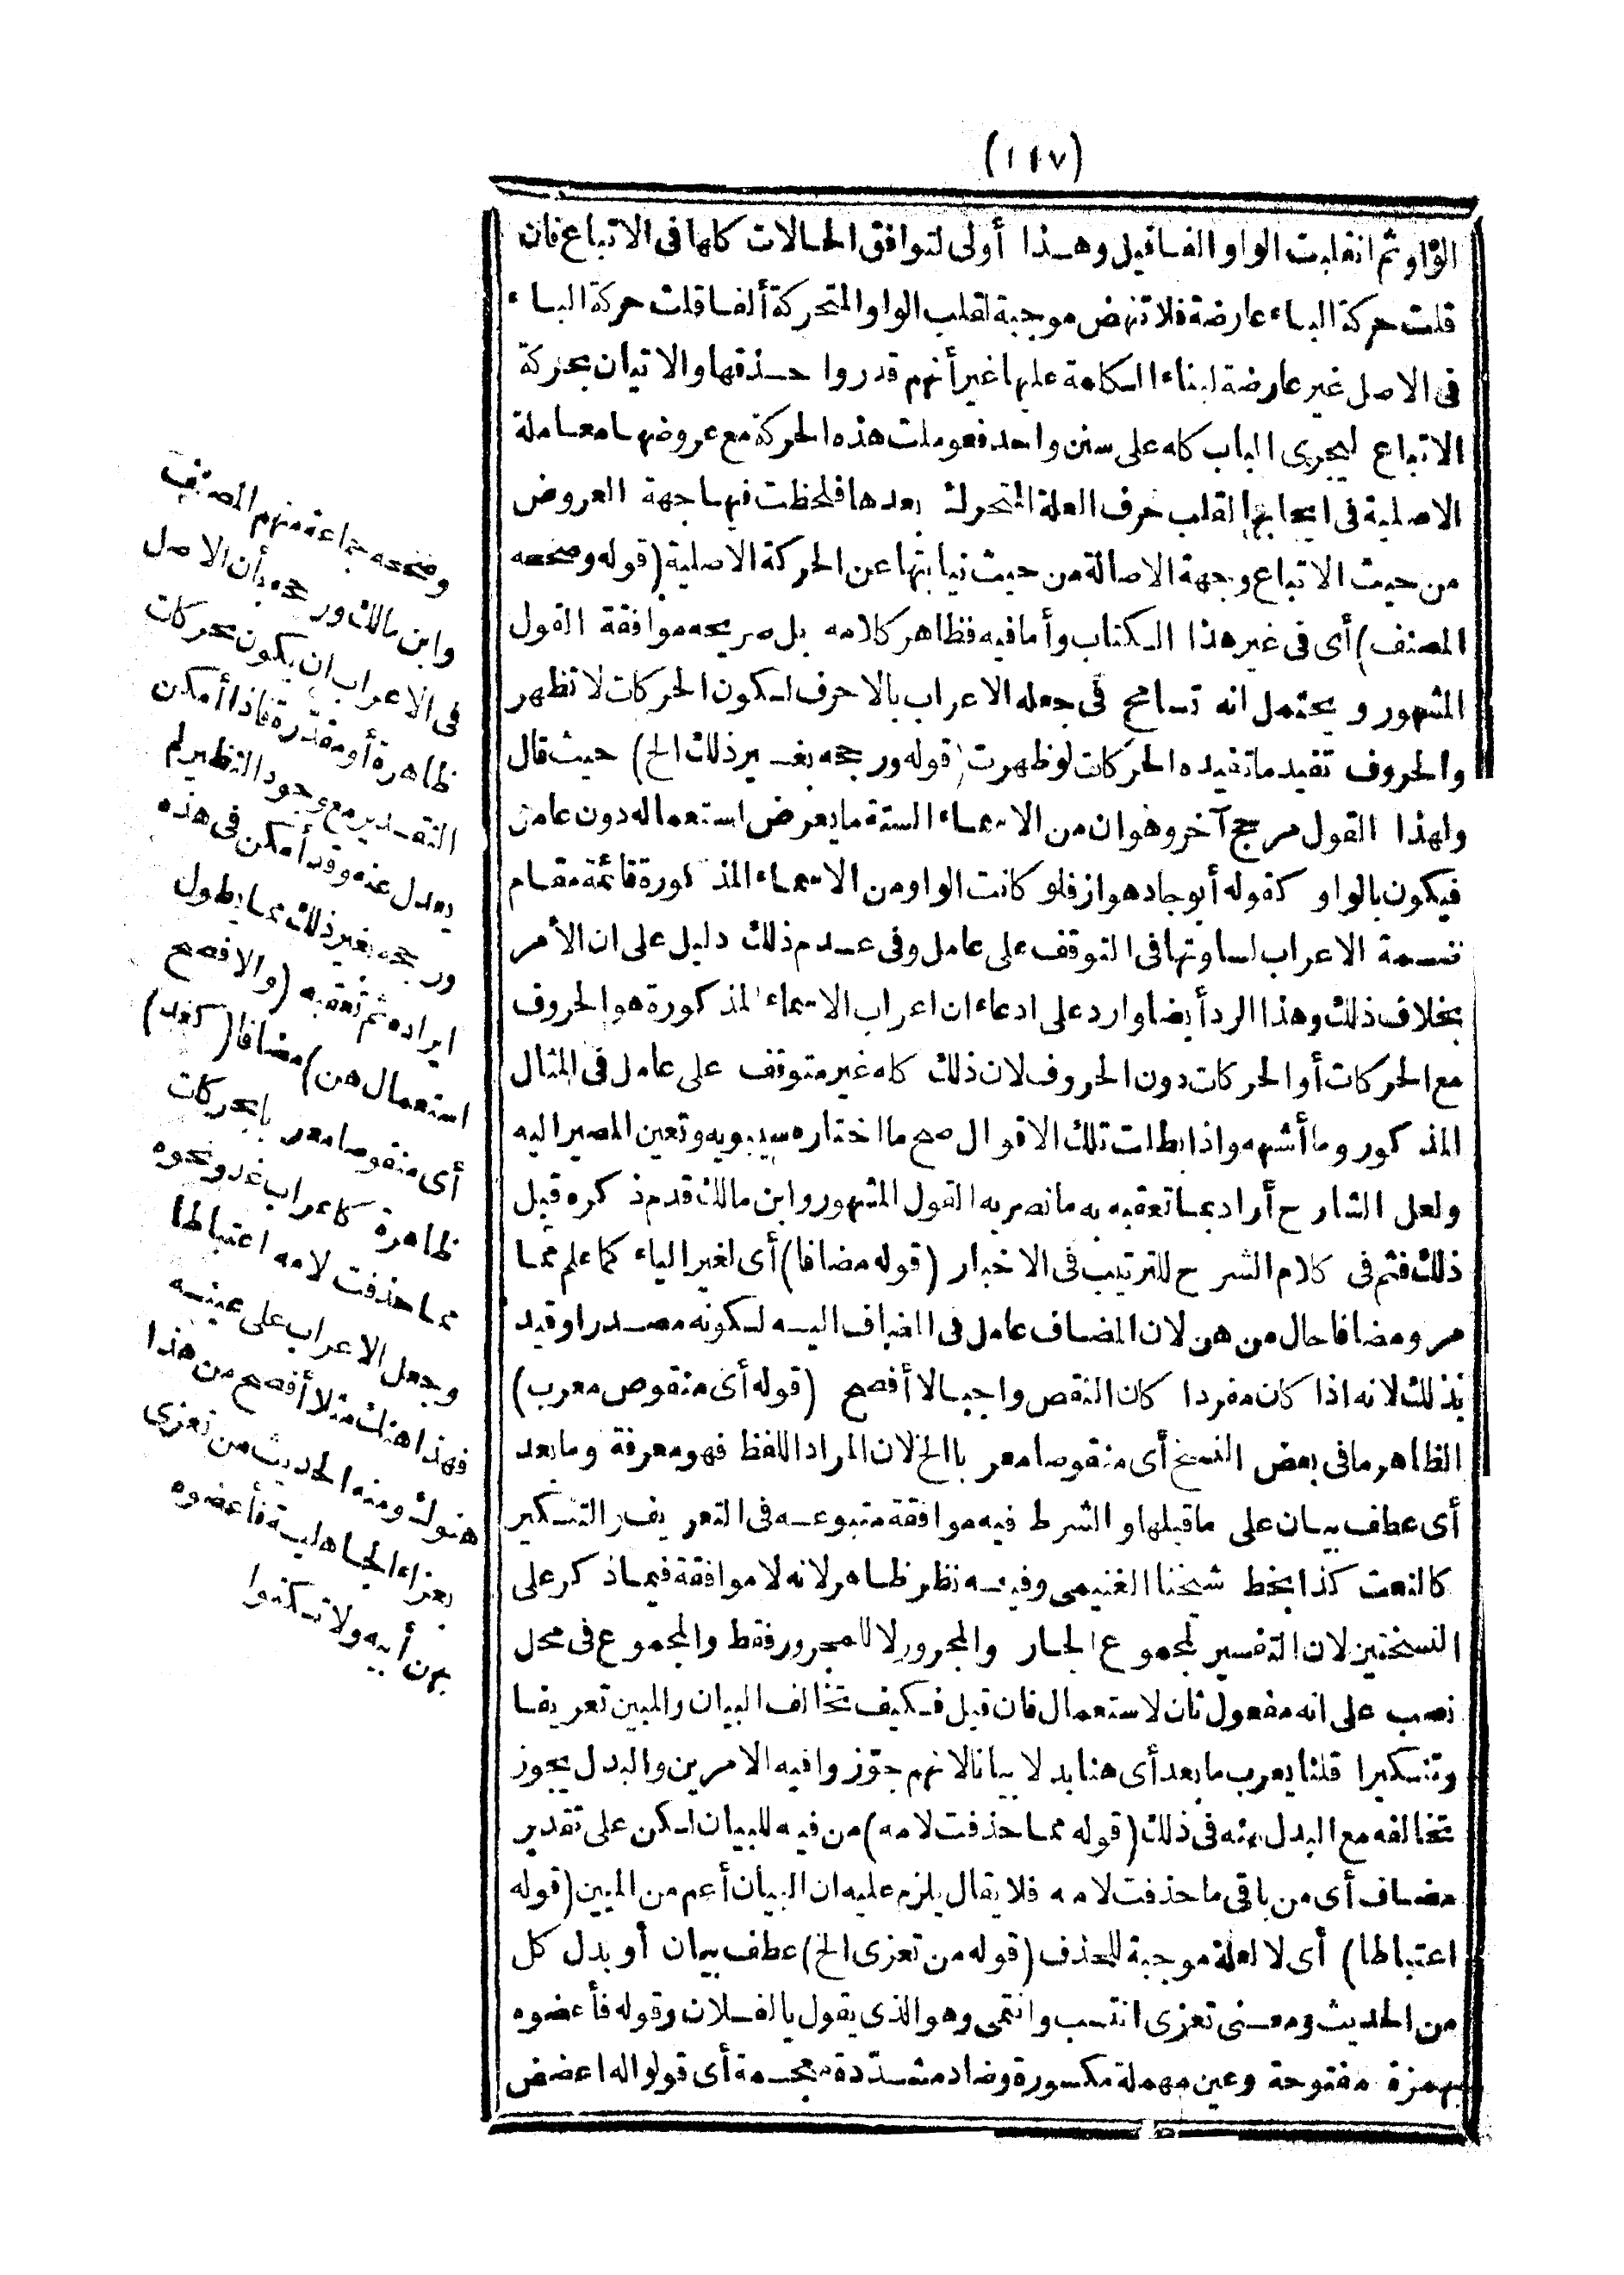 (١١٧)
الواو ثم انقلبت الواو ألفا قيل وهذا أولى لتوافق الحالات كلها فى الاتباع فان
قلت حركة الباء عارضة فلا تنهض موجبة لقلب الواو المتحركة ألفا قلت حركة الباء
فى الاصل غير عارضة لبناء الكلمة عليها غير أنهم قدروا حذفها والاتيان بحركة
الاتباع ليجرى الباب كله على سنن واحد فعوملت هذه الحركة مع عروضها معاملة
الاصلية فى ايجابها القلب حرف العلة المتحرك بعدها فلحظت فيها جهة العروض
من حيث الاتباع وجهة الاصالة من حيث نيابتها عن الحركة الاصلية (قوله وصححه
المصنف) أى فى غير هذا الكتاب وأما فيه فظاهر كلامه بل صريحه موافقة القول
المشهور و يحتمل انه تسامح فى جعله الاعراب بالاحرف لكون الحركات لا تظهر
والحروف تفيد ما تفيده الحركات لو ظهرت (قوله ورجحه بغير ذلك الخ) حيث قال
ولهذا القول مرجح آخر وهو ان من الاسماء الستة ما يعرض استعماله دون عامل
فيكون بالواو كقوله أبو جاد هواز فلو كانت الواو من الاسماء المذكورة قائمة مقام
ضمة الاعراب لساوتها فى التوقف على عامل وفى عدم ذلك دليل على ان الأمر
بخلاف ذلك وهذا الرد أيضا وارد على ادعاء ان اعراب الاسماء المذكورة هو الحروف
مع الحركات أو الحركات دون الحروف لان ذلك كله غير متوقف على عامل فى المثال
المذكور وما أشبهه واذا بطلت تلك الاقوال صح ما اختاره سيبويه وتعين المصير اليه
ولعل الشارح أراد بما تعقبه به ما نصر به القول المشهور وابن مالك قدم ذكره قبل
ذلك فثم فى كلام الشرح للترتيب فى الاخبار (قوله مضافا) أى لغير الياء كما علم مما
مر ومضافا حال من هن لان المضاف عامل فى المضاف اليه لكونه مصدرا وقيد
بذلك لانه اذا كان مفردا كان النقص واجبا لا أفصح (قوله أى منقوص معرب)
الظاهر ما فى بعض النسخ أى منقوصا معربا الخ لان المراد اللفظ فهو معرفة وما بعد
أى عطف بيان على ما قبلها والشرط فيه موافقة متبوعه فى التعريف والتنكير
كالنعت كذا بخط شيخنا الغنيمى وفيه نظر ظاهر لانه لا موافقة فيما ذكر على
النسختين لان التفسير لمجموع الجار والمجرور لا للمجرور فقط والمجموع فى محل
نصب على انه مفعول ثان لاستعمال فان قيل فكيف تخالف البيان والمبين تعريفا
وتنكيرا قلنا يعرب ما بعد أى هنا بدلا بيانا لانهم جوّزوا فيه الامرين والبدل يجوز
تخالفه مع المبدل منه فى ذلك (قوله مما حذفت لامه) من فيه للبيان لكن على تقدير
مضاف أى من باقى ما حذفت لامه فلا يقال يلزم عليه ان البيان أعم من المبين (قوله
اعتباطا) أى لا لعلة موجبة للحذف (قوله من تعزى الخ) عطف بيان أو بدل كل
من الحديث ومعنى تعزى انتسب وانتمى وهو الذى يقول يا لفلان وقوله فأعضوه
بهمزة مفتوحة وعين مهملة مكسورة وضاد مشددة معجمة أى قولوا له اعضض
وصححه جماعة منهم المصنف
وابن مالك ورجحه بأن الاصل
فى الاعراب ان يكون بحركات
ظاهرة أو مقدّرة فاذا أمكن
التقدير مع وجود النظير لم
يعدل عنه وقد أمكن فى هذه
ورجحه بغير ذلك مما يطول
ايراده ثم تعقبه (والافصح
استعمال هن) مضافا (كغد)
أى منقوصا معربا بحركات
ظاهرة كاعراب غد ونحوه
مما حذفت لامه اعتباطا
وجعل الاعراب على عينه
فهذا هنك مثلا أفصح من هذا
هنوك ومنه الحديث من تعزى
بعزاء الجاهلية فأعضوه
بهن أبيه ولا تكنوا